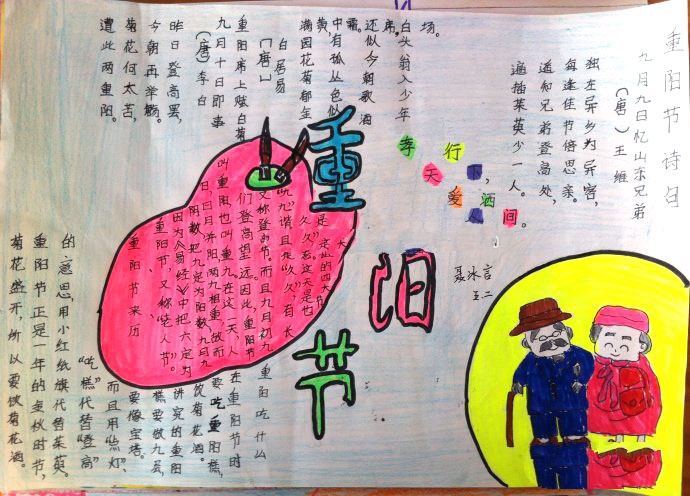 重阳节诗句
九月九日忆山东兄弟
（唐）王维
独在异乡为异客，
每逢佳节倍思亲。
遥知兄弟登高处，
遍插茱萸少一人。
孝行
天下，
爱洒
人间。
聂冰言
重阳节
重阳席上赋白菊
（唐）
白居易
满园花菊郁金
黄，
中有孤丛色似
霜。
还似今朝歌酒
席。
白头翁入少年
场。
九月十日即事
（唐）李白
昨日登高罢，
今朝再举觞。
菊花何太苦，
遭此两重阳。
重阳节来历
重阳节，又称“老人节”。
因为《易经》中把六定为
阴数，把九定为阳数，九月九
日，日月并阳，两九相重，故而
叫重阳，也叫重九。在这一天，人
们登高望远，因此重阳节
又称登高节。而且九月初九
“九九”谐音是“久久”，有长
久
的四大节
重阳吃什么
在重阳节时
要吃重阳糕，
饮菊花酒。
讲究的重阳
糕要做九层，
要像宝塔。
而且用“点灯”、
“吃糕”代替“登高”
的意思，用小红纸旗代替茱萸。
重阳节正是一年的金秋时节，
菊花盛开，所以要饮菊花酒。